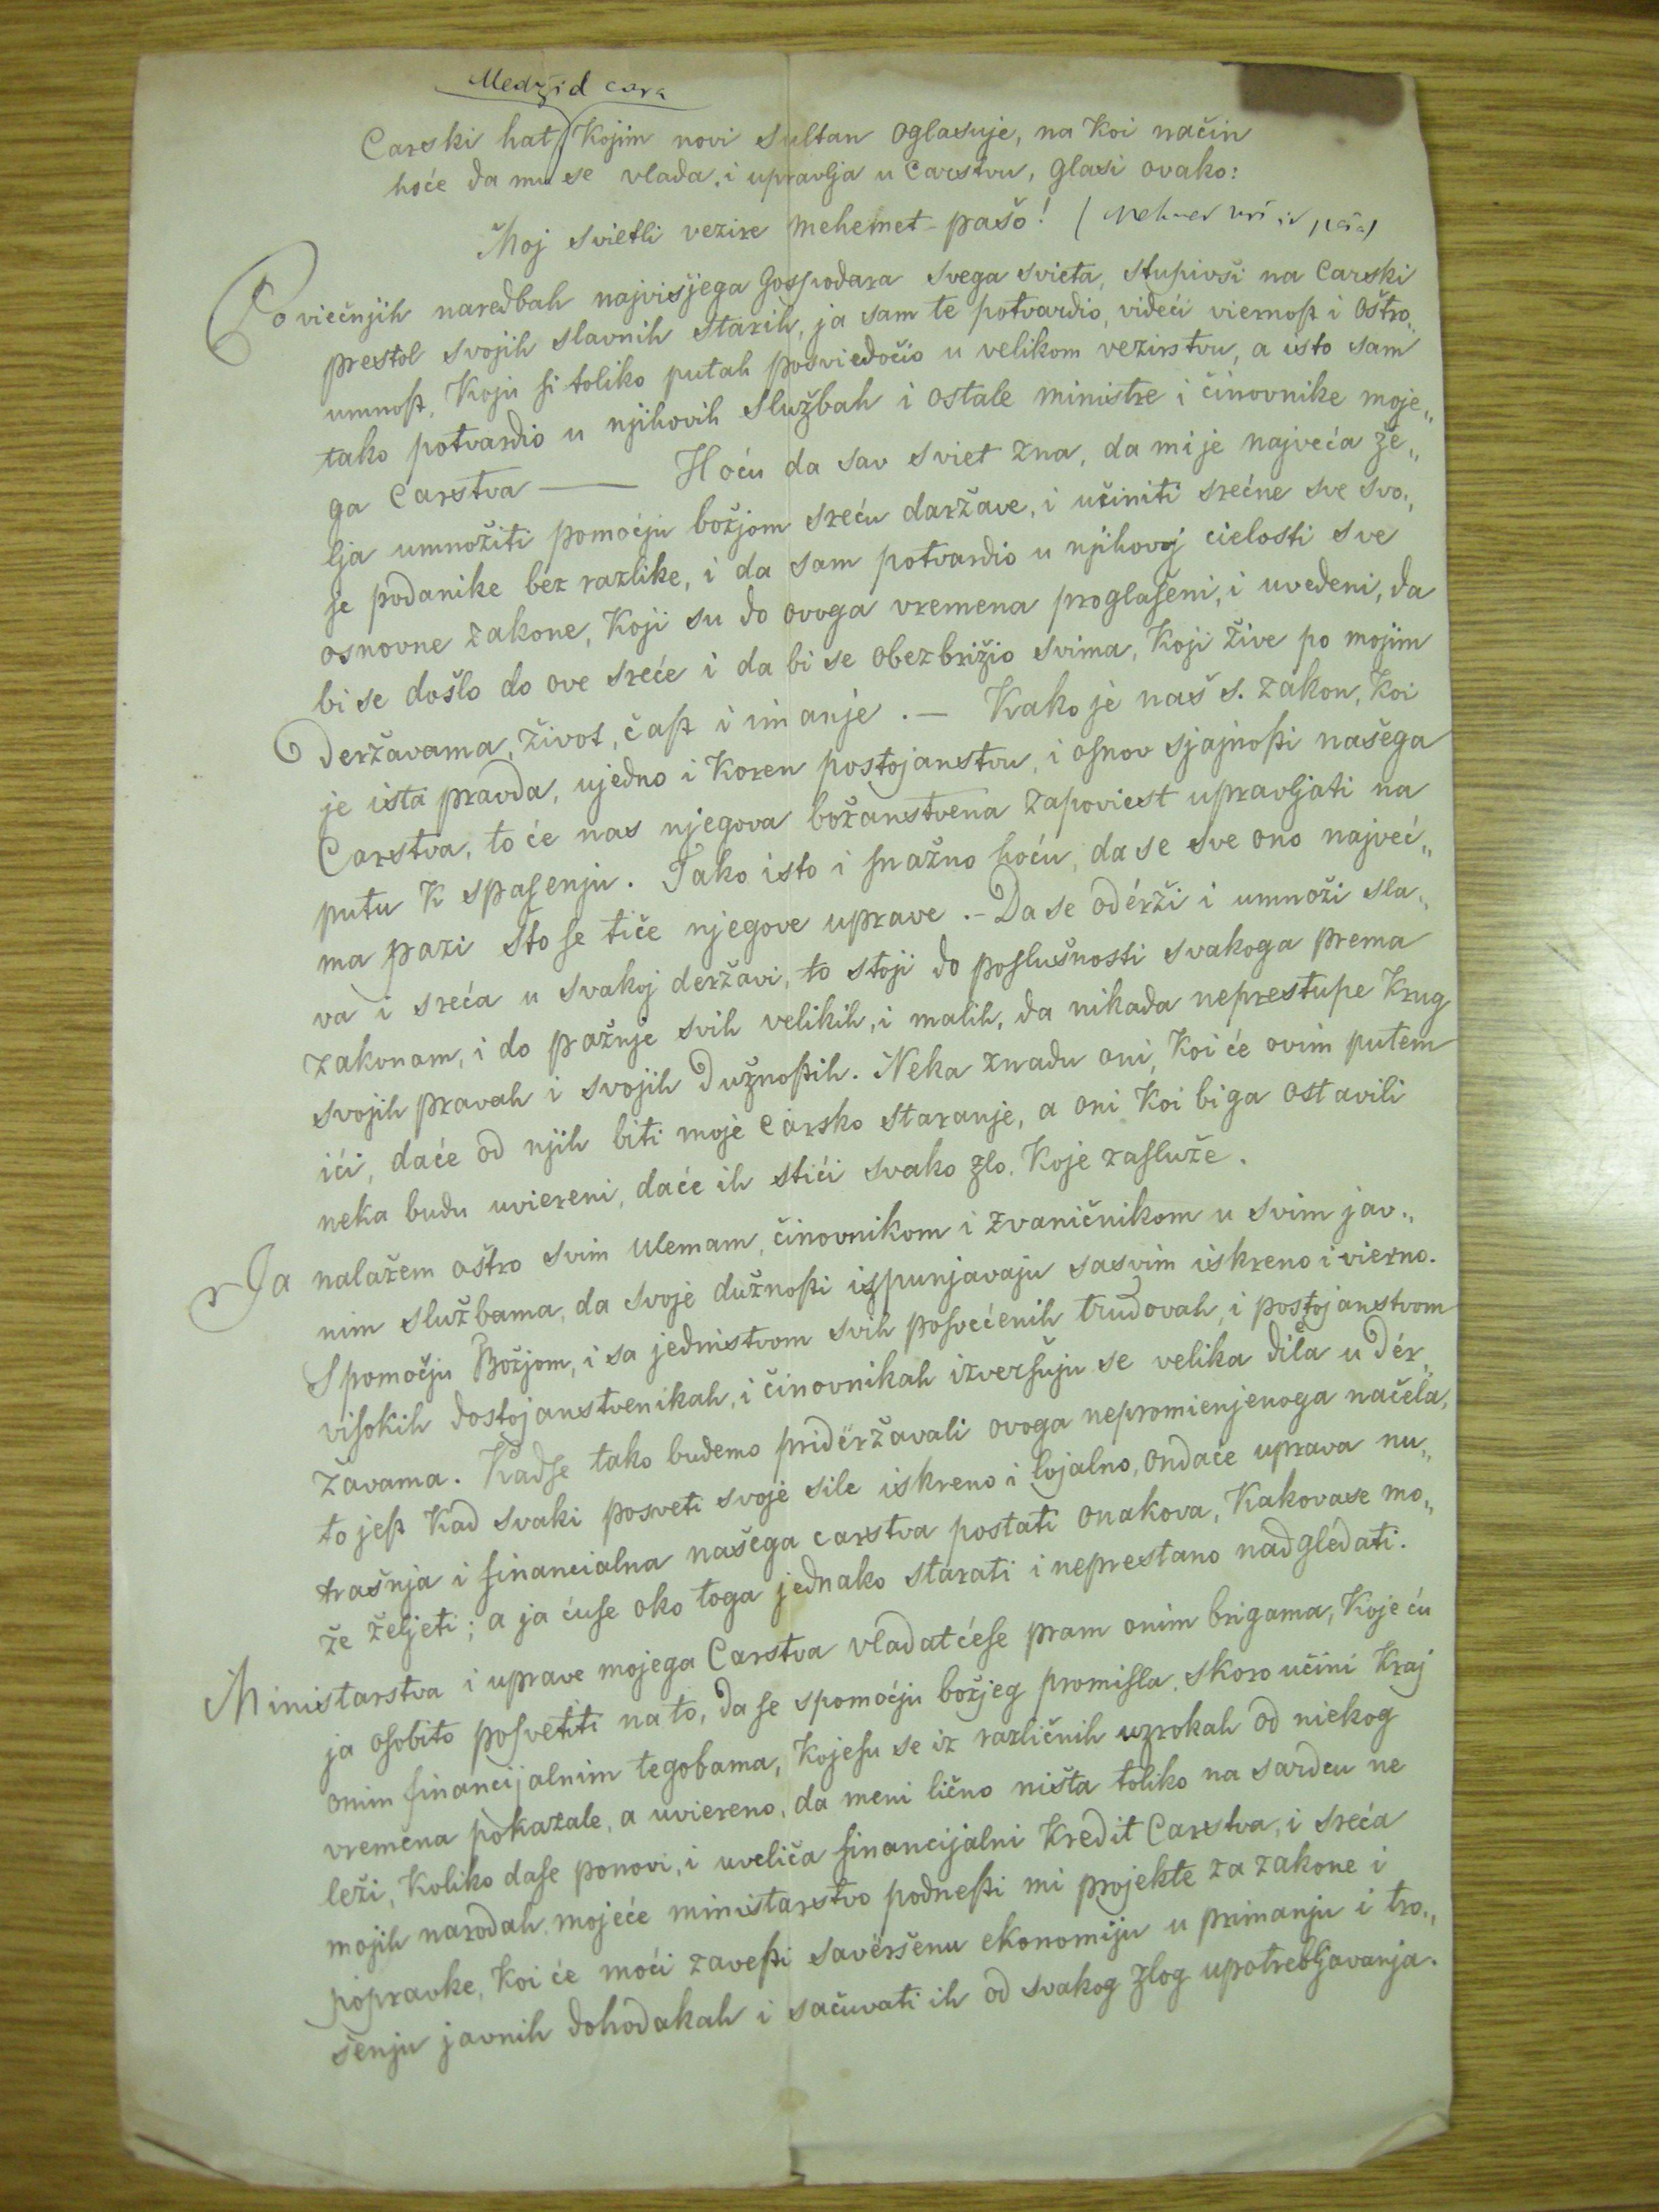 Medžid cara
Carski hat, Kojim novi sultan oglasuje, na Koi način
hoće da mu se vlada, i upravlja u Carstvu, glasi ovako:
Moj svietli vezire Mehemet-pašo! (Mehmed
Po viečnjih naredbah najvisjega Gospodara svega svieta, stupivši na Carski
prestol svojih slavnih starih, ja sam te potvardio, videći viernost i oštro„
umnost, Koju si toliko putah posviedočio u velikom vezirstvu, a isto sam
tako potvardio u njihovih službah i ostale ministre i činovnike moje„
ga Carstva — Hoću da sav sviet zna, da mi je najveća že„
lja umnožiti pomoćju božjom sreću daržave, i učiniti srećne sve svo„
je podanike bez razlike, i da sam potvardio u njihovoj cielosti sve
osnovne zakone, Koji su do ovoga vremena proglašeni, i uvedeni, da
bi se došlo do ove sreće i da bi se obezbrižio svima, Koji žive po mojim
Deržavama, život, čast i imanje. — Kako je naš s. zakon, Koi
je ista pravda, ujedno i Koren postojanstvu, i osnov sjajnosti našega
Carstva, to će nas njegova božanstvena zapoviest upravljati na
putu K spasenju. Tako isto i snažno hoću, da se sve ono najveć„
ma pazi što se tiče njegove uprave. - Da se odérži i umnoži sla„
va i sreća u svakoj deržavi, to stoji do poslušnosti svakoga prema
zakonam, i do pažnje svih velikih, i malih, da nikada neprestupe Krug
svojih pravah i svojih Dužnostih. Neka znadu oni, Koi će ovim putem
ići, daće od njih biti moje Carsko staranje, a oni Koi bi ga ostavili
neka budu uviereni, daće ih stići svako zlo, Koje zasluže.
Ja nalažem oštro svim Ulemam, činovnikom i zvaničnikom u svim jav„
nim službama, da svoje dužnosti izpunjavaju sasvim iskreno i vierno.
S pomoćju Božjom, i sa jedinstvom svih posvećenih trudovah, i postojanstvom
visokih dostojanstvenikah, i činovnikah izversuju se velika dila u Dér„
žavama. Kadse tako budemo pridérżavali ovoga nepromienjenoga načela,
to jest Kad svaki posveti svoje sile iskreno i lojalno, ondaće uprava nu„
trašnja i financialna našega carstva postati onakova, Kakovase mo„
že željeti; a ja ćuse oko toga jednako starati i neprestano nadgledati.
Ministarstva i uprave mojega Carstva vladatćese pram onim brigama, Koje ću
ja osobito posvetiti na to, da se spomoćju božjeg promisla, skoro učini Kraj
onim financijalnim tegobama, Kojesu se iz različnih uzrokah od niekog
vremena pokazale, a uviereno, da meni lično ništa toliko na sardcu ne
leži, Koliko dase ponovi, i uveliča financijalni Kredit Carstva, i sreća
mojih narodah, mojeće ministarstvo podnesti mi projekte za zakone i
popravke, Koi će moći zavesti savéršenu ekonomiju u primanju i tro„
šenju javnih dohodakah i sačuvati ih od svakog zlog upotrebljavanja.